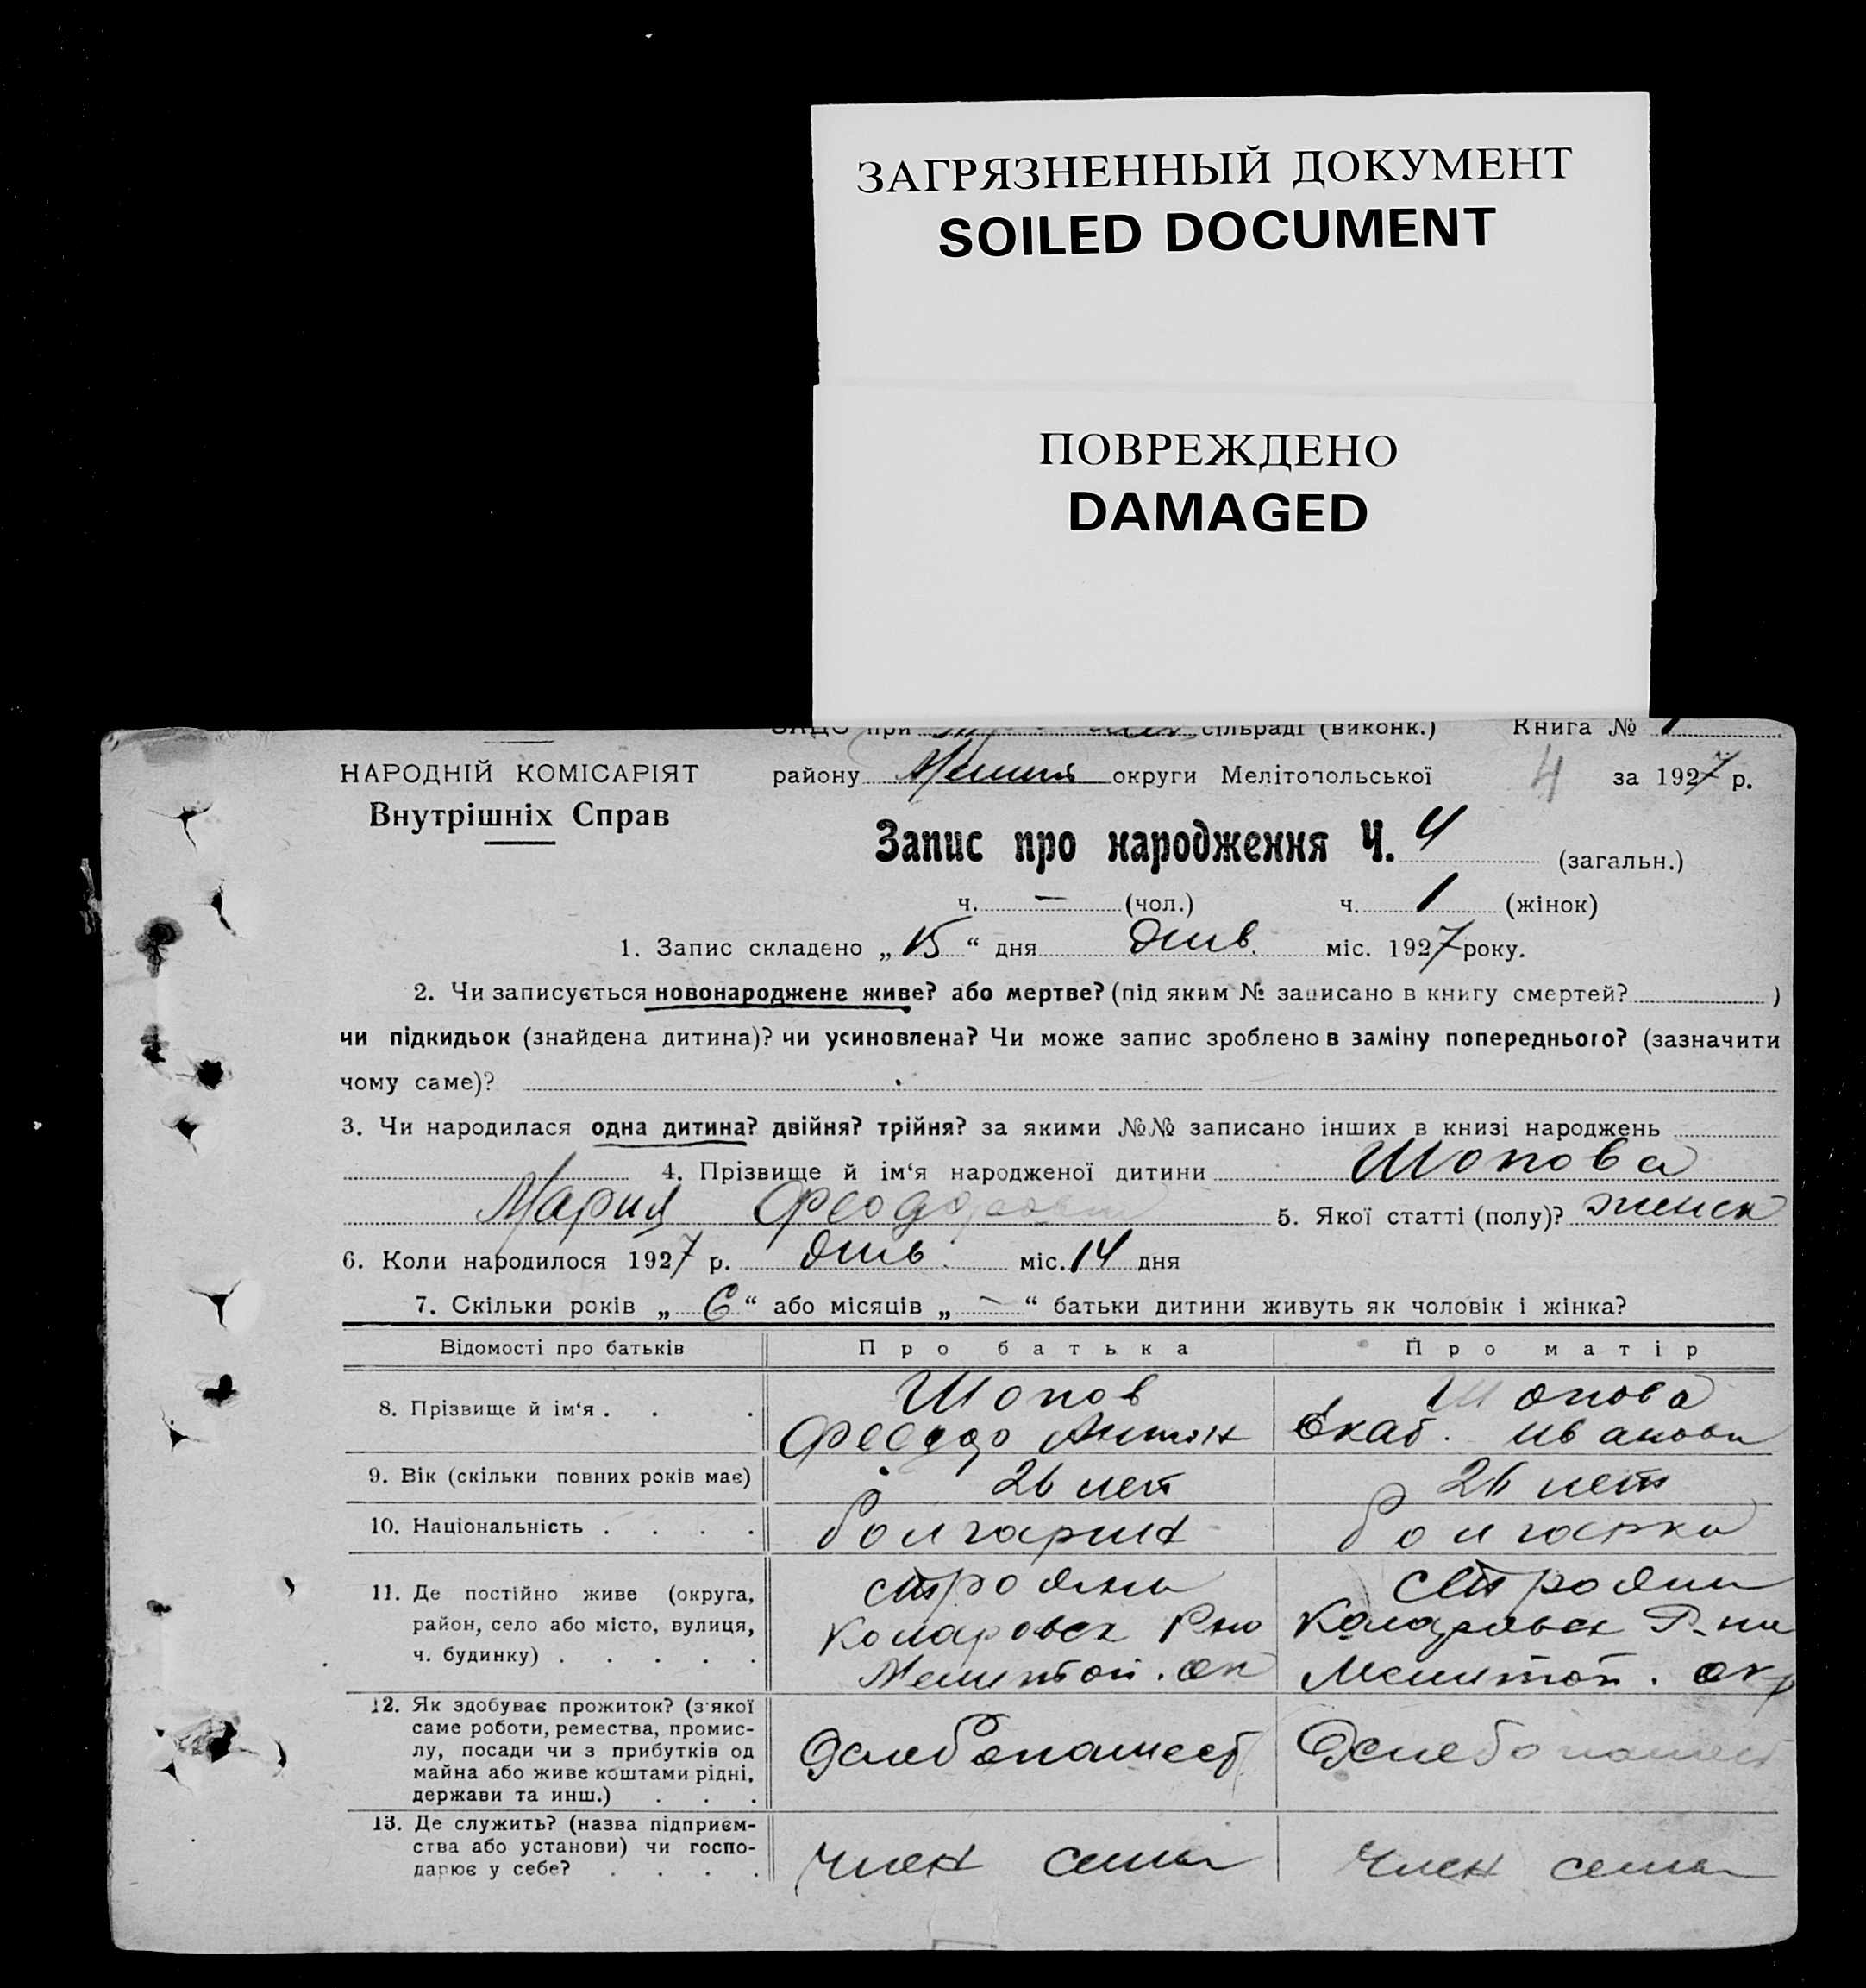 ЗАГРЯЗНЕННЫЙ ДОКУМЕНТ
SOILED DOCUMENT
ПОВРЕЖДЕНО
DAMAGED
при сільраді (виконк.) Книга № 1
НАРОДНІЙ КОМІСАРІЯТ
Внутрішніх Справ
району округи Мелітопольської 4 за 1927 р.
Запис про народження Ч. 4 (загальн.)
ч. — (чол.) ч. 1 (жінок)
1. Запис складено „ 15 “ дня янв. міс. 1927 року.
2. Чи записується новонароджене живе? або мертве? (під яким № записано в книгу смертей? )
чи підкидьок (знайдена дитина)? чи усиновлена? Чи може запис зроблено в заміну попереднього? (зазначити
чому саме)?
3. Чи народилася одна дитина? двійня? трійня? за якими №№ записано інших в книзі народжень
4. Прізвище й ім‘я народженої дитини Шопова
Мария Феодоровна 5. Якої статті (полу)? женск
6. Коли народилося 1927 р. янв. міс. 14 дня
7. Скільки років „ 6 “ або місяців „ — “ батьки дитини живуть як чоловік і жінка?
Відомості про батьків Про батька Про матір
8. Прізвище й ім‘я . . . Шопов Шопова
Феодор Антон Екат. Иванови
9. Вік (скільки повних років має) 26 лет 26 лет
10. Національність . . . . болгарин болгарка
11. Де постійно живе (округа, район, село або місто, вулиця, ч. будинку) . . . . .
Строяны Строяны
Коларовск Р-на Коларовск Р-на
Мелитоп. ок Мелитоп. окр
12. Як здобуває прожиток? (з якої
саме роботи, ремества, промис-
лу, посади чи з прибутків од
майна або живе коштами рідні,
держави та инш.) . . .
Хлебопашест Хлебопашест
13. Де служить? (назва підприєм-
ства або установи) чи госпо-
дарює у себе? . . . .
Член семи Член семи